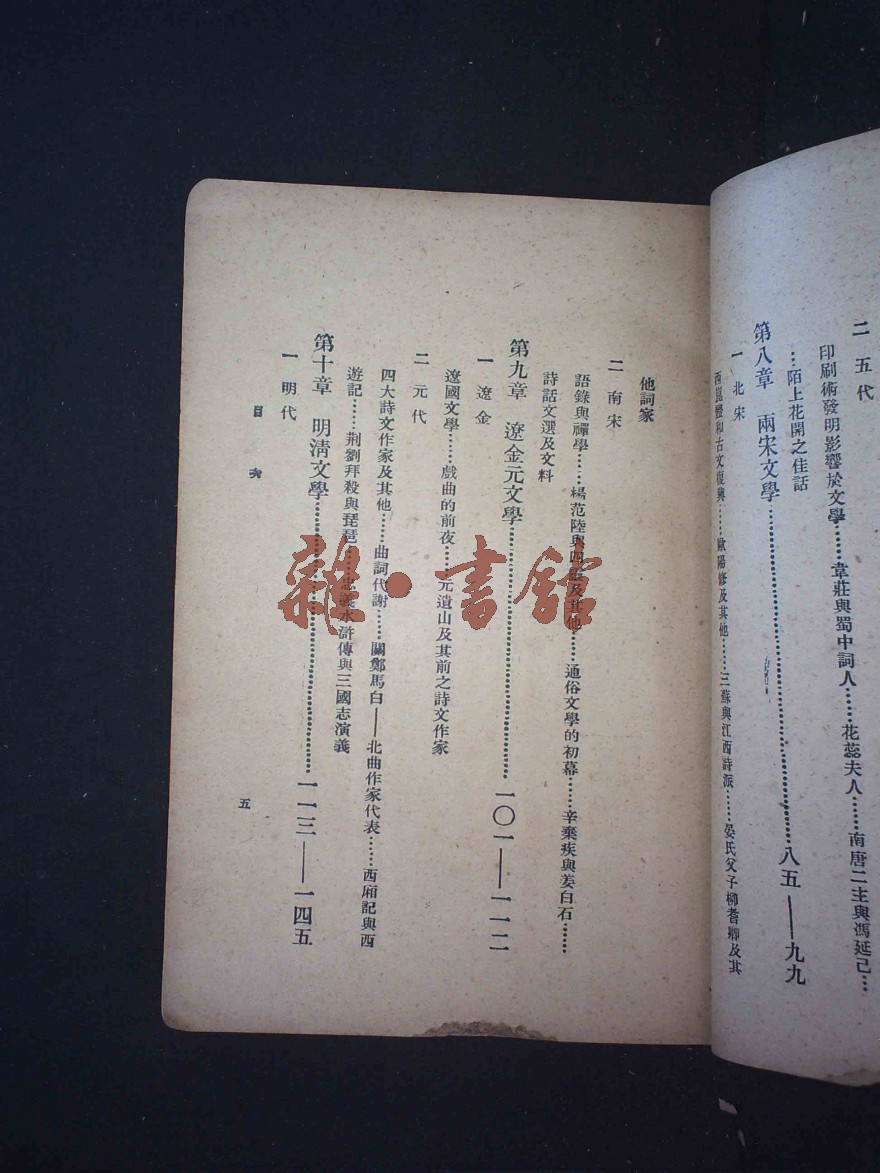 二 五代
印刷術發明影響於文學……韋莊與蜀中詞人……花蕊夫人……南唐二主與馮延己…
…陌上花開之佳話
第八章 兩宋文學………八五——九九
一 北宋
西崑體和古文復興……歐陽修及其他……三蘇與江西詩派……晏氏父子柳耆卿及其
他詞家
二 南宋
語錄與禪學……楊范陸與四靈及其他……通俗文學的初幕……辛棄疾與姜白石……
詩話文選及文料
第九章 遼金元文學………一〇一——一一二
一 遼金
遼國文學……戲曲的前夜……元遺山及其前之詩文作家
二 元代
四大詩文作家及其他……曲詞代謝……關鄭馬白——北曲作家代表……西廂記與西
遊記……荆劉拜殺與琵琶……忠義水滸傳與三國志演義
第十章 明清文學………一一三——一四五
一 明代
目 次
五
雜·書館